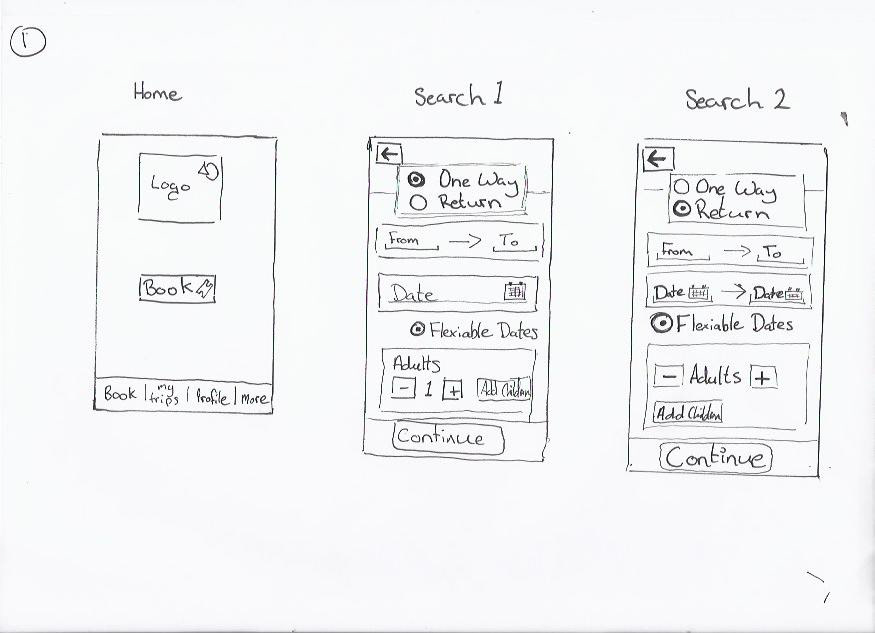 1
Home
Search 1
Search 2
Logo
Book
Book | my trips | Profile | More
One Way
Return
From → To
Date
Flexiable Dates
Adults
− 1 + Add Children
Continue
One Way
Return
From → To
Date → Date
Flexiable Dates
− Adults +
Add Children
Continue